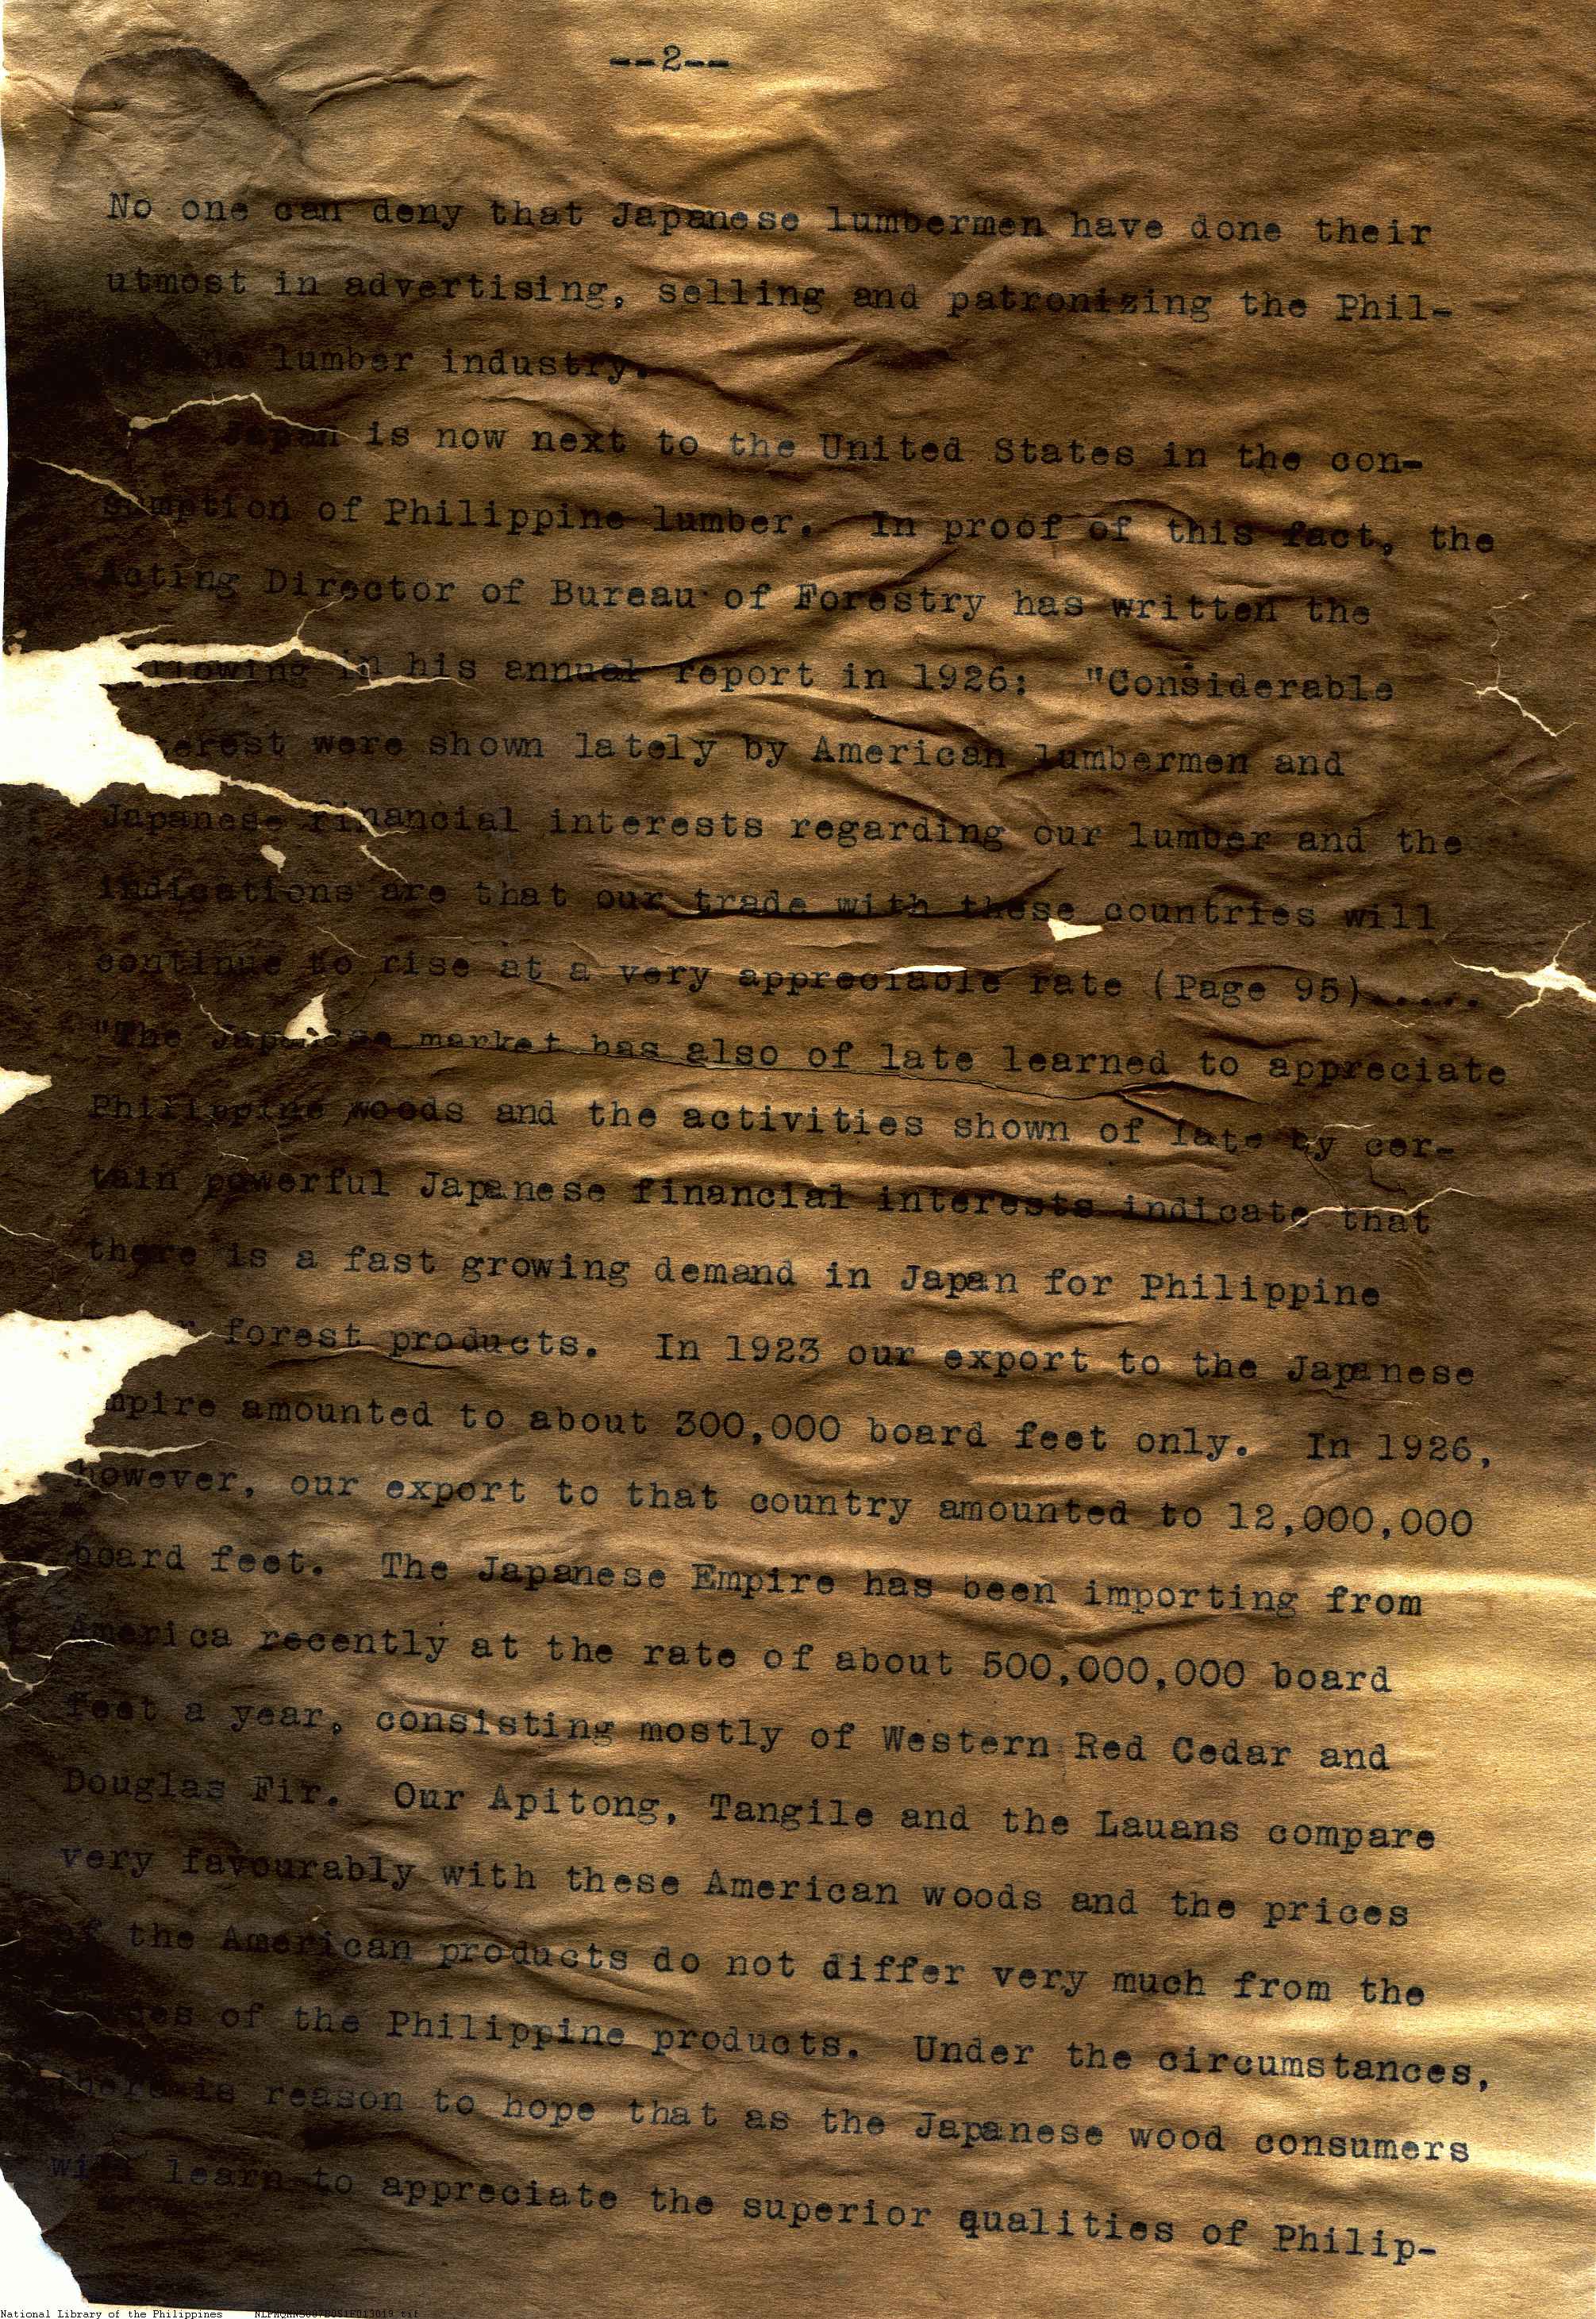 --2--
No one can deny that Japanese lumbermen have done their
utmost in advertising, selling and patronizing the Phil-
lumber industry.
Japan is now next to the United States in the con-
sumption of Philippine lumber. In proof of this fact, the
Acting Director of Bureau of Forestry has written the
following in his annual report in 1926: "Considerable
interest were shown lately by American lumbermen and
Japanese financial interests regarding our lumber and the
indications are that our trade with these countries will
continue to rise at a very appreciable rate (Page 95).....
"The Japanese market has also of late learned to appreciate
Philippine woods and the activities shown of late by cer-
tain powerful Japanese financial interests indicate that
there is a fast growing demand in Japan for Philippine
forest products. In 1923 our export to the Japanese
Empire amounted to about 300,000 board feet only. In 1926,
however, our export to that country amounted to 12,000,000
board feet. The Japanese Empire has been importing from
America recently at the rate of about 500,000,000 board
feet a year, consisting mostly of Western Red Cedar and
Douglas Fir. Our Apitong, Tangile and the Lauans compare
very favourably with these American woods and the prices
of the American products do not differ very much from the
of the Philippine products. Under the circumstances,
there is reason to hope that as the Japanese wood consumers
will learn to appreciate the superior qualities of Philip-
National Library of the Philippines